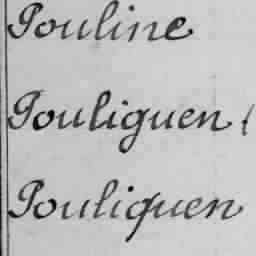 Pouline
Pouliguen (
Pouliquen